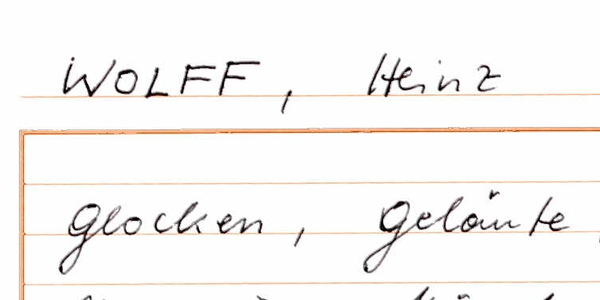 WOLFF, Heinz
Glocken, Geläute